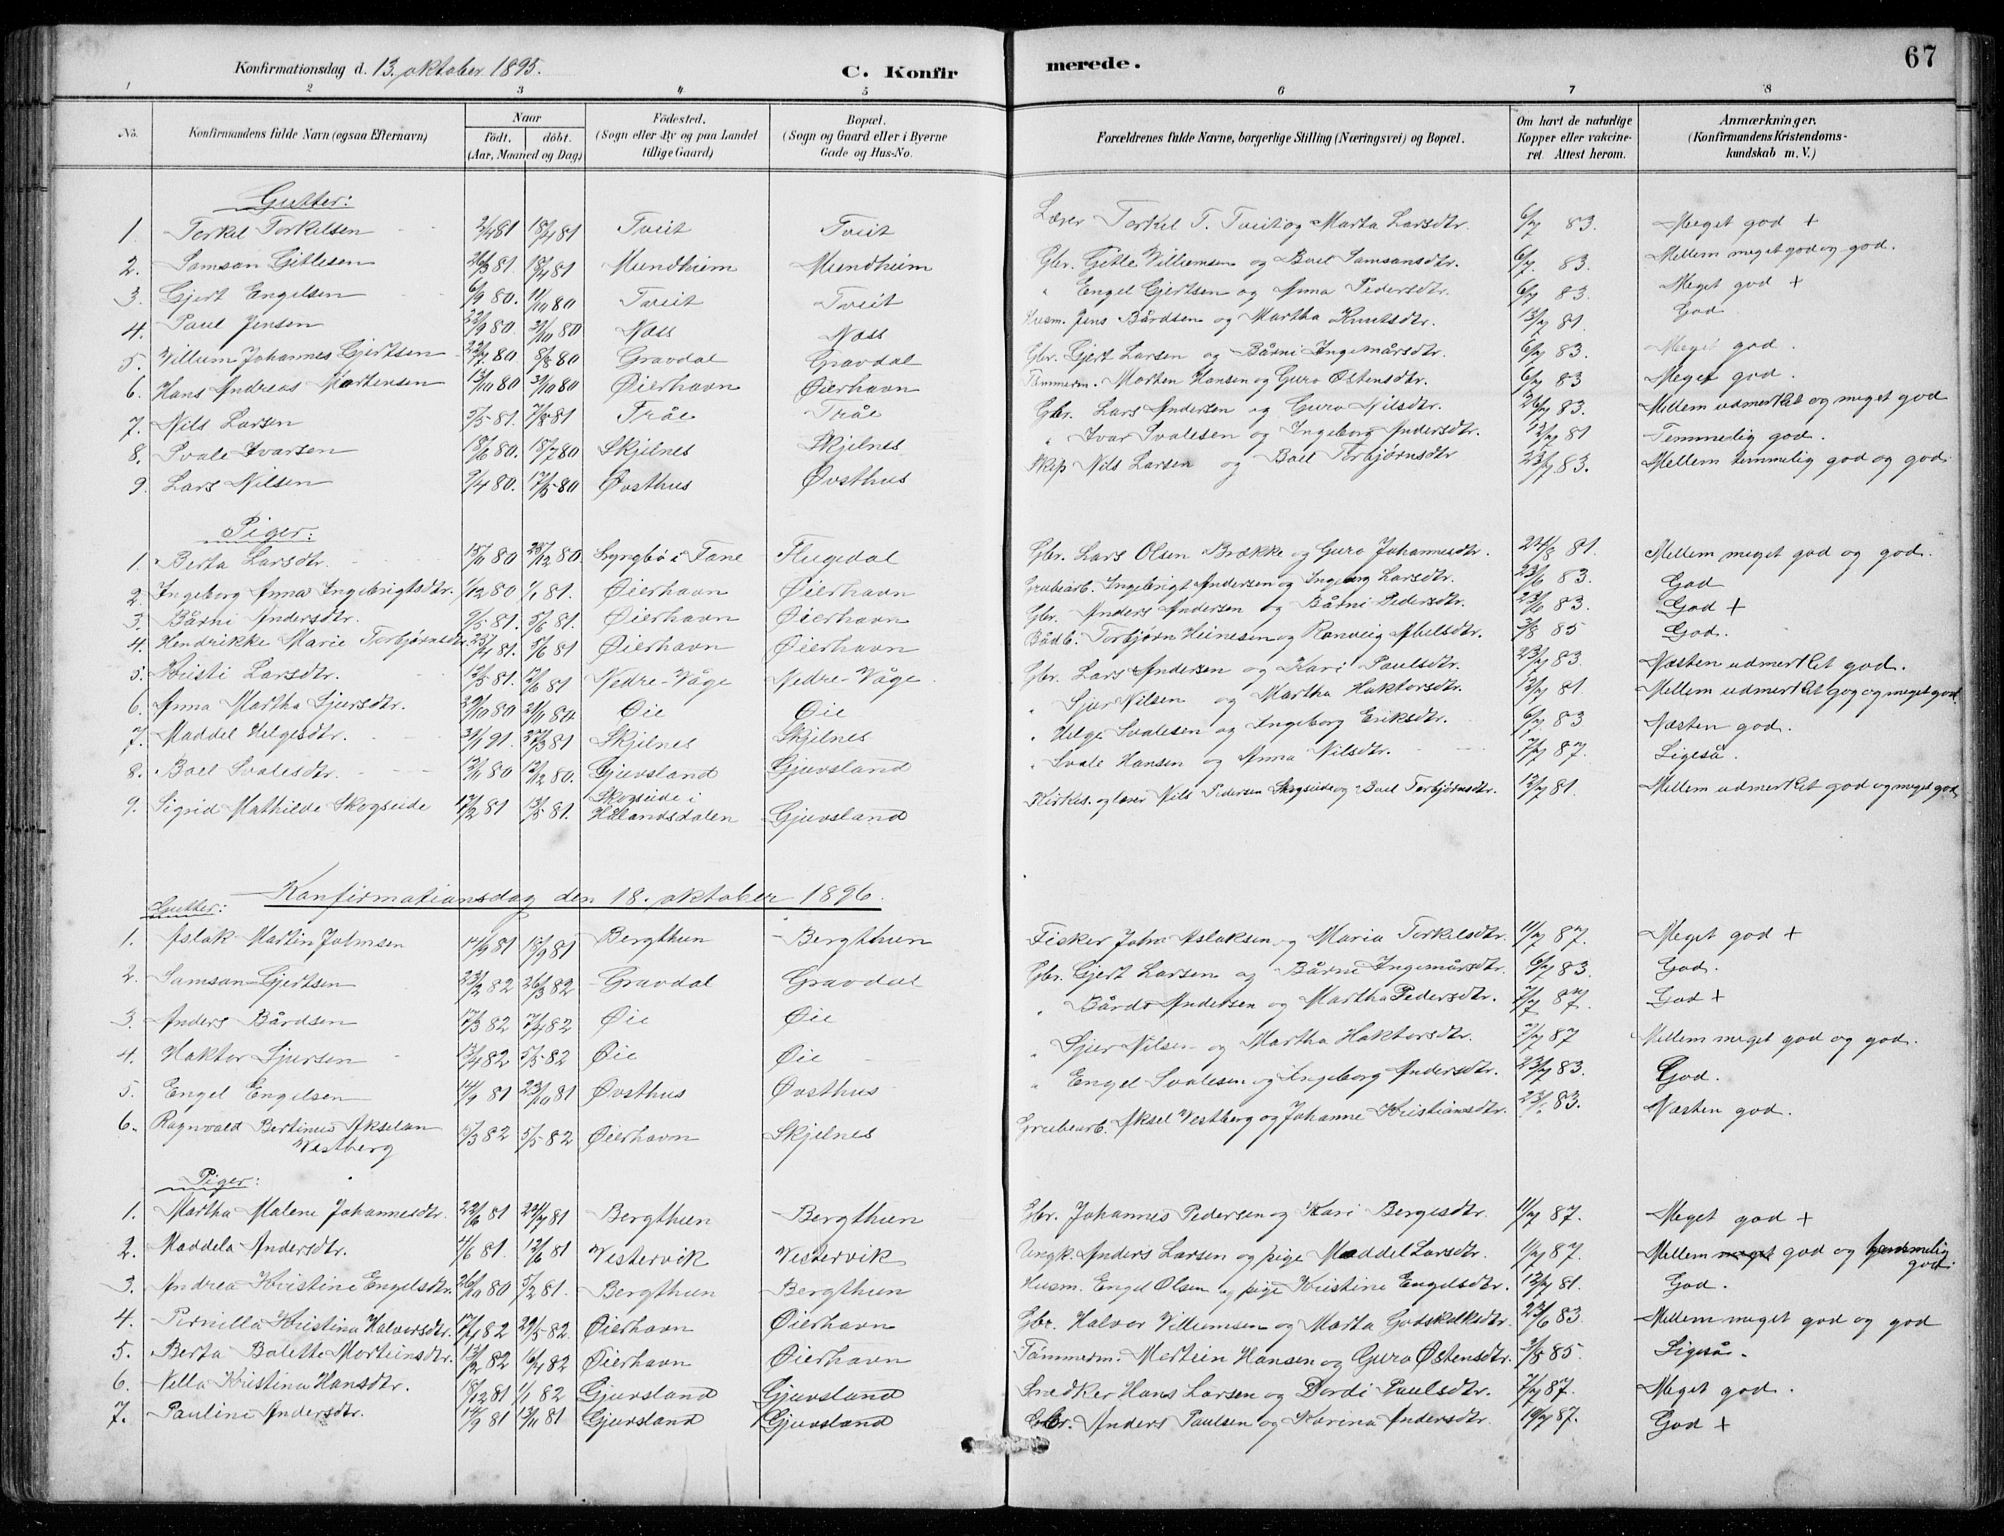 67
Konfirmationsdag d. 13. oktober 1895. C. Konfirmerede.
1 2 3 4 5 6 7 8
No. Konfirmandens fulde Navn (ogsaa Efternavn) Naar født. døbt. (Aar, Maaned og Dag) Fødested. (Sogn eller By og paa Landet tillige Gaard) Bopæl. (Sogn og Gaard eller i Byerne Gade og Hus-No. Forældrenes fulde Navne, borgerlige Stilling (Næringsvei) og Bopæl. Om havt de naturlige Kopper eller vakcineret Attest herom. Anmærkninger. (Konfirmandens Kristendomskundskab m. V.)
Gutter:
1. Torkel Torkelsen 2/4 81 18/4 81 Tveit Tveit Lærer Torkel T. Tveit og Marta Larsdtr. 6/7 83 Meget god +
2. Samson Gitlesen 26/3 81. 18/4 81 Mundheim Mundheim Gbr. Gitle Villiemsen og Boel Samsonsdtr. 6/7. 83 Mellem meget god og god.
3. Gjert Engelsen 6/9 80. 11/10 80 Tveit Tveit " Engel Gjertsen og Anna Pedersdtr. 6/7 83. Meget god +
4. Paul Jensen 22/9 80. 31/10 80 Næss Næss Husm. Jens Bårdsen og Martha Knutsdtr. 13/7 81. God
5. Villum Johannes Gjertsen 22/7 80 8/8 80 Gravdal Gravdal Gbr. Gjert Larsen og Bårni Ingemårsdtr. 6/7 83. Meget god.
6. Hans Andreas Mortensen 13/10 80 31/10 80 Øierhavn Øierhavn Tømmerm. Morten Hansen og Guro Østensdtr. 6/7 83 Meget god.
7. Nils Larsen 5/5 81. 7/8 81 Tråe Tråe Gbr. Lars Andersen og Guro Nilsdtr. 26/7 83. Mellem udmerket og meget god
8. Svale Ivarsen 18/6 80. 18/7 80 Skjelnes Skjelnes " Ivar Svalesen og Ingeborg Andersdtr. 12/7 81 Temmelig god.
9. Lars Nilsen 9/4 80. 17/5 80 Øvsthus Øvsthus Skip. Nils Larsen og Boel Torbjørnsdtr 23/7 83. Mellem temmelig god og god.
Piger:
1. Berta Larsdtr. 80 25/12 80. Lyngbø i Fane Flugedal Gbr. Lars Olsen Brække og Guro Johannesdtr. 24/8 81. Mellem meget god og god.
2. Ingeborg Anna Ingebrigtsdtr. 1/12 80 1/1 81. Øierhavn Øierhavn Grubearb. Ingebrigt Andersen og Ingeborg Larsdtr. 23/6 83. God
3. Bårni Andersdtr. 9/5 81. 5/6 81 Øierhavn Øierhavn Gbr. Anders Andersen og Bårni Pedersdtr. 23/6 83. God +
4. Hendrikke Marie Torbjørnsdtr. 25/4 81. 5/6 81 Øierhavn Øierhavn Bådb. Torbjørn Heinesen og Ranveig Abelsdtr. 3/8 85 God.
5. Kristi Larsdtr. 12/5 81. 12/6 81 Nedre-Våge Nedre-Våge Gbr. Lars Andersen og Kari Paulsdtr. 23/7 83. Næsten udmerket god.
6. Anna Martha Sjursdtr. 20/10 80 21/11 80. Øie Øie " Sjur Nilsen og Martha Haktorsdtr. 12/7 81. Mellem udmerket gog og meget god.
7. Maddel Helgesdtr. 31/1 91. 27/3 81 Skjelnes Skjelnes " Helge Svalesen og Ingeborg Eriksdtr. 6/7 83 Næsten god.
8. Boel Svalesdtr. 12/11 80 12/12 80. Gjuvsland Gjuvsland " Svale Hansen og Anna Nilsdtr. 7/7 87. Ligeså.
9. Sigrid Mathilde Skogseide 17/2 81 15/5 81. Skogseide i Hålandsdalen Gjuvsland Kirkes. og lærer Nils Pedersen Skogseide og Boel Torbjørnsdtr. 12/7 81. Mellem udmerket god og meget god
Konfirmationsdag den 18. oktober 1896.
Gutter:
1. Aslak Martin Johnsen 14/9 81 18/9 81 Bergthun Bergthun Fisker John Aslaksen og Maria Torkelsdtr. 11/7 87. Meget god +
2. Samson Gjertsen 23/2 82 26/3 82 Gravdal Gravdal Gbr. Gjert Larsen og Bårni Ingemårsdtr. 6/7 83. God.
3. Anders Bårdsen 17/3 82 7/4 82 Øie Øie " Bårdt Andersen og Martha Pedersdtr. 7/7 87. God +
4. Haktor Sjursen 13/4 82 5/5 82 Øie Øie " Sjur Nilsen og Martha Haktorsdtr. 7/7 87 Mellem meget god og god.
5. Engel Engelsen 14/9 81 23/10 81 Øvsthus Øvsthus " Engel Svalesen og Ingeborg Andersdtr. 23/7 83. God.
6. Ragnvald Bertinus Akselsen Vestberg 82 5/5 82 Øierhavn Skjelnes Grubearb. Aksel Vestberg og Johanne Kristiansdtr. 83. Næsten god.
Piger:
1. Martha Malene Johannesdtr. 22/6 81 24/7 81 Bergthun Bergthun Gbr. Johannes Pedersen og Kari Bergesdtr. 11/7 87. Meget god +
2. Maddela Andersdtr. 4/6 81. 12/6 81 Vestervik Vestervik Ungk. Anders Larsen og pige Maddel Larsdtr. 11/7 87. Mellem meget god og temmelig god.
3. Andrea Kristine Engelsdtr. 26/10 80 5/2 81. Bergthun Bergthun Husm. Engel Olsen og pige Kristine Engelsdtr. 12/7 81. God.
4. Pernilla Kristina Halversdtr. 17/4 82 21/5 82. Øierhavn Øierhavn Gbr. Halvor Villiemsen og Marta Godskalksdtr. 23/6 83. Mellem meget god og god
5. Berta Bolette Morteinsdtr. 13/2 82 16/4 82 Øierhavn Øierhavn Tømmerm. Mortein Hansen og Guro Østensdtr. 3/8 85. Ligeså.
6. Nella Kristina Hansdtr. 18/12 81 1/1 82 Gjuvsland Gjuvsland Snedker Hans Larsen og Dordi Paulsdtr. 7/7 87. Meget god.
7. Pauline Andersdtr. 14/9 81 13/11 81 Gjuvsland Gjuvsland Gbr. Anders Paulsen og Karina Andersdtr. 19/7 87. God +